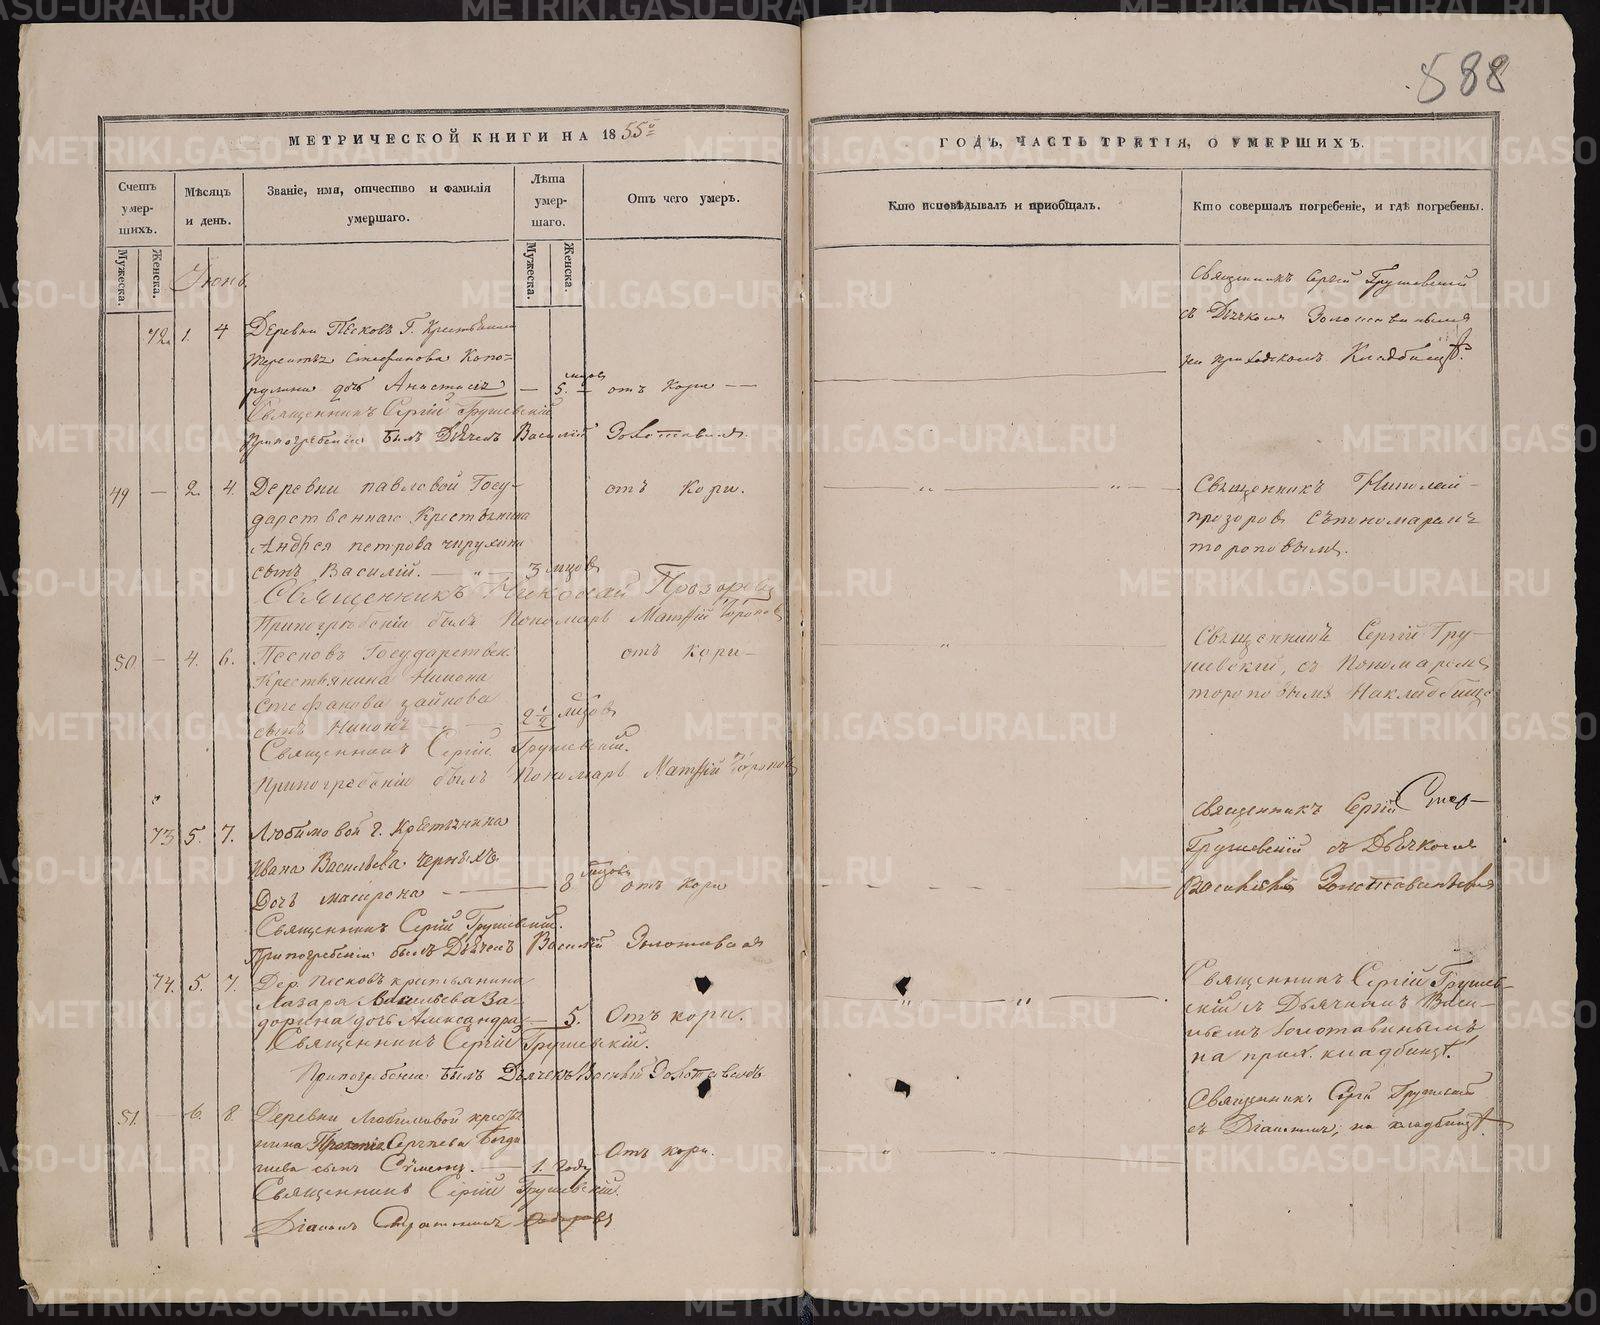 588
МЕТРИЧЕСКОЙ КНИГИ НА 1855й
ГОДЪ, ЧАСТЬ ТРЕТІЯ, О УМЕРШИХЪ.
Счетъ умер-шихъ.
Мужеска.
Женска.
Мѣсяцъ и день.
Званіе, имя, отчество и фамилія умершаго.
Лѣта умер-шаго.
Мужеска.
Женска.
Отъ чего умеръ.
Кто исповѣдывалъ и пріобщалъ.
Кто совершалъ погребеніе, и гдѣ погребены.
Іюнь
72. 1. 4 Деревни Песковъ Г. Крестьянина
Стефанова Копо-
рулина дочь Анастасія — 5. мцовъ — отъ Кори —
Священникъ Сергій Грушевскій
При погребеніи былъ Дьячекъ Василій Золотавинъ.
Священникъ Сергій Грушевскій
съ Дьячкомъ Золотавинымъ
на приходскомъ Кладбищѣ.
49 — 2. 4. Деревни павловой Госу-
дарственнаго Крестьянина
Андрея петрова чирухина
сынъ Василій. — „ — 3 мцовъ
отъ кори.
Священникъ Николай Прозоровъ
При погребеніи былъ Пономарь Матѳій Тороповъ
Священникъ Николай
прозоровъ съ пономаремъ
тороповымъ.
50 — 4. 6. Песковъ Государствен.
Крестьянина Никона
Стефанова зайкова
сынъ Никонъ — 2 1/2 мцовъ
отъ кори —
Священникъ Сергій Грушевскій.
При погребеніи былъ Пономарь Матѳій Тороповъ
Священникъ Сергій Гру-
шевскій, съ Пономаремъ
тороповымъ На кладбище
73 5. 7. Любимовой г. Крестьянина
Ивана Васильева Черныхъ
Дочь — 8 мцовъ отъ кори
Священникъ Сергій Грушевскій.
При погребеніи былъ Дьячекъ Василій Золотавинъ
Священникъ Сергій
Грушевскій съ Дьячкомъ
Василіемъ Золотавинымъ
74. 5. 7. Дер. Песковъ крестьянина
Лазаря Васильева За-
дорина дочь Александра — 5. Отъ кори.
Священникъ Сергій Грушевскій.
При погребеніи былъ Дьячекъ Василій Золотавинъ
Священникъ Сергій Грушев-
скій съ Дьячкомъ Васи-
льемъ Золотавинымъ
на прих. кладбищѣ.
51. — 6. 8 Деревни Любимовой кресть-
нина Прокопія Сергѣева Богда
сынъ — 1. году
Отъ кори.
Священникъ Сергій Грушевскій.
Діаконъ
Священникъ Сергій Грушевскій
съ Діакономъ, на кладбищѣ
METRIKI.GASO-URAL.RU